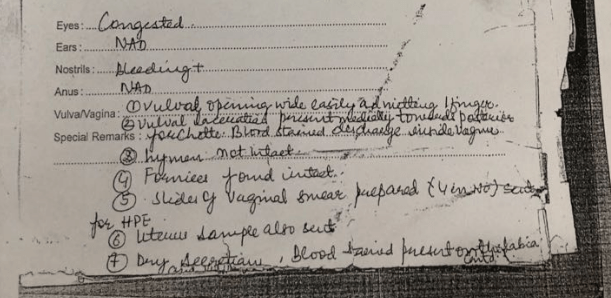 Eyes : Congested
Ears : NAD
Nostrils : Bleeding +
Anus : NAD
Vulva/Vagina : ① Vulval opening wide easily admitting 1 finger.
② Vulval laceration present medially towards posterior
Special Remarks : fourchette. Blood stained discharge inside vagina
③ hymen not intact
④ Fornices found intact.
⑤ Slides of vaginal smear prepared (4 in No) sent
for HPE
⑥ Uterus sample also sent
⑦ Dry secretion, Blood stained present on labia